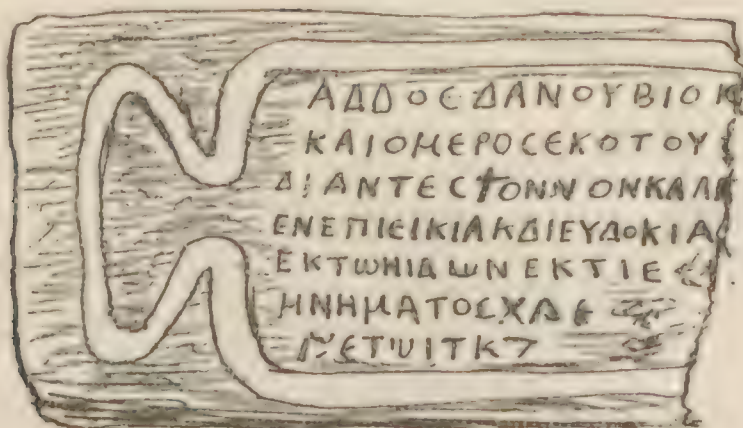 ΑΔΔΟΕΔΑΝΟΥΒΙΟΚ
ΚΑΙΟΜΕΡΟСΕΚΟΤΟΥ
ΔΙΑΝΤΕС†ΟΝΝΟΝΚΑΛΛ
ΕΝΕΠΙΕΙΚΙΑΚΔΙΕΥΔΟΚΙΑ
ΕΚΤΩΗΙΔΙΩΝΕΚΤΙΕ
ΗΝΗΜΑΤΟΣΧΛΕ